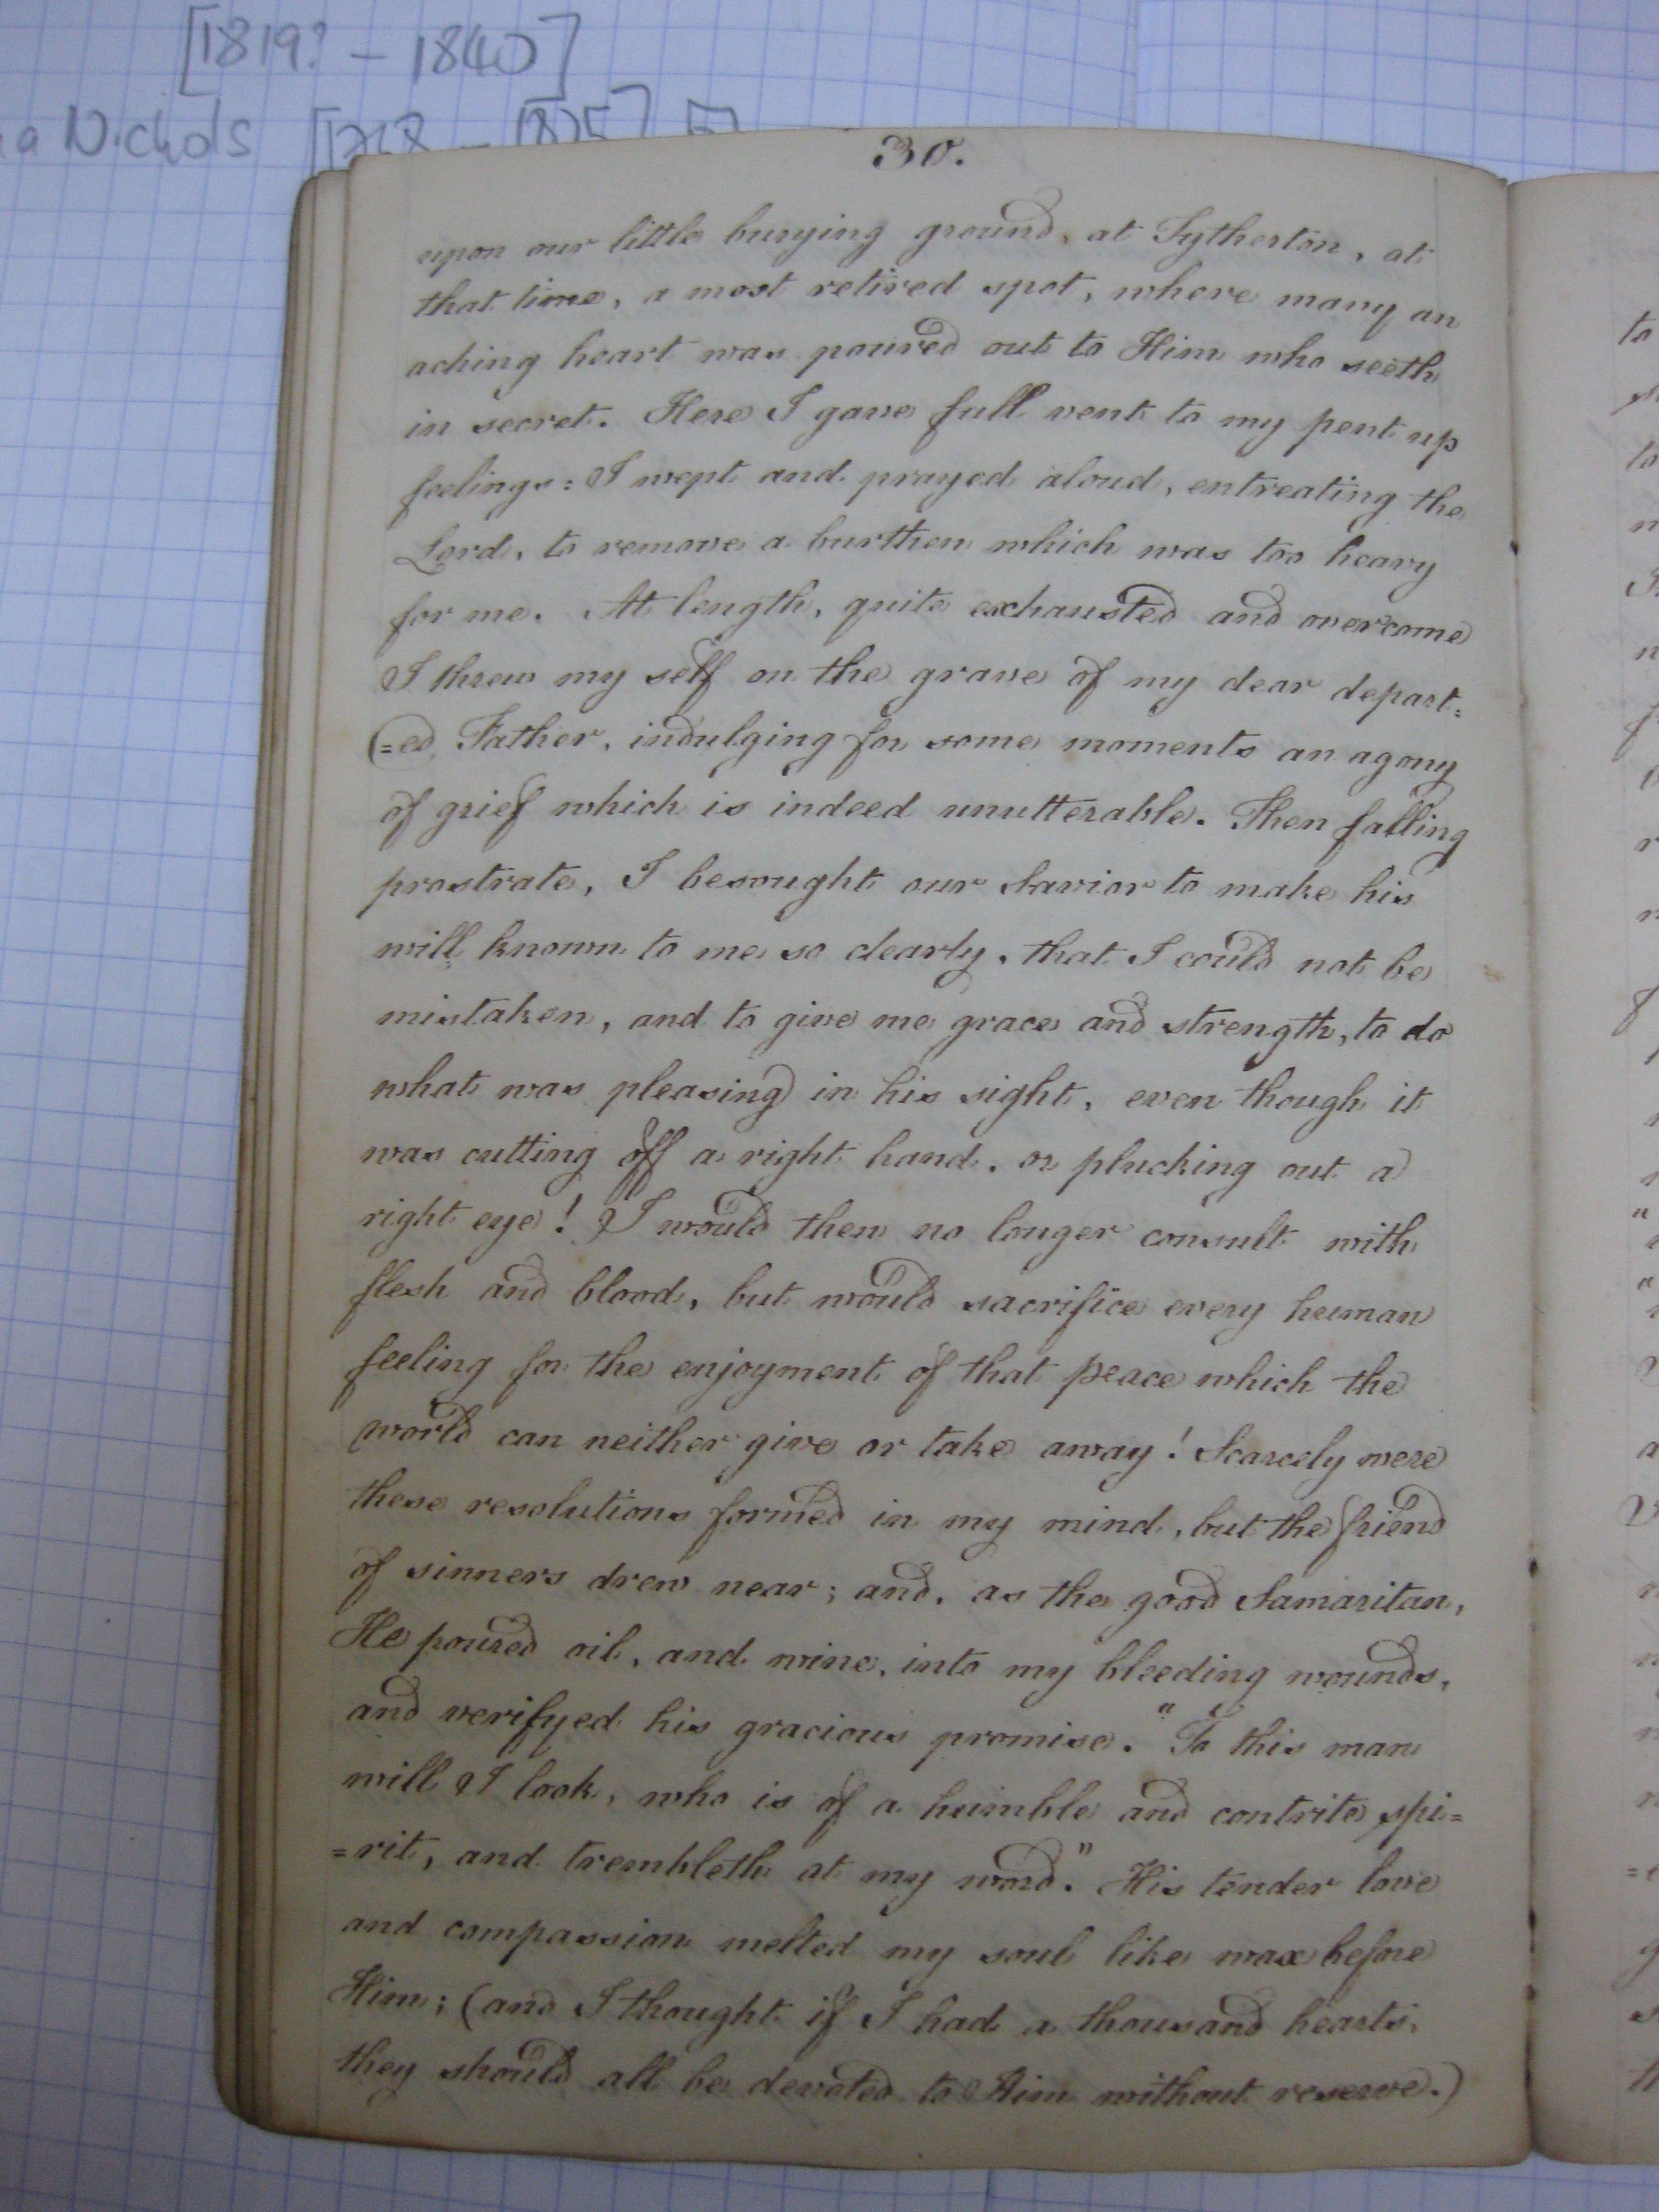 [1819? - 1840]
a Nichols
30.
upon our little burying ground, at Tytherton, at
that time, a most retired spot, where many an
aching heart was poured out to Him who seeth
in secret. Here I gave full vent to my pent up
feelings: I wept and prayed aloud, entreating the
Lord, to remove a burthen which was too heavy
for me. At length, quite exhausted and overcome
I threw my self on the grave of my dear depart=
=ed Father, indulging for some moments an agony
of grief which is indeed unutterable. Then falling
prostrate, I besought our Savior to make his
will known to me so clearly, that I could not be
mistaken, and to give me grace and strength, to do
what was pleasing in his sight, even though it
was cutting off a right hand, or plucking out a
right eye! I would then no longer consult with
flesh and blood, but would sacrifice every human
feeling for the enjoyment of that peace which the
world can neither give or take away! Scarcely were
these resolutions formed in my mind, but the friend
of sinners drew near; and, as the good Samaritan,
He poured oil, and wine, into my bleeding wounds,
and verifyed his gracious promise. "To this man
will I look, who is of a humble and contrite spi=
=rit, and trembleth at my word." His tender love
and compassion melted my soul like wax before
Him; (and I thought if I had a thousand hearts,
they should all be devoted to Him without reserve.)